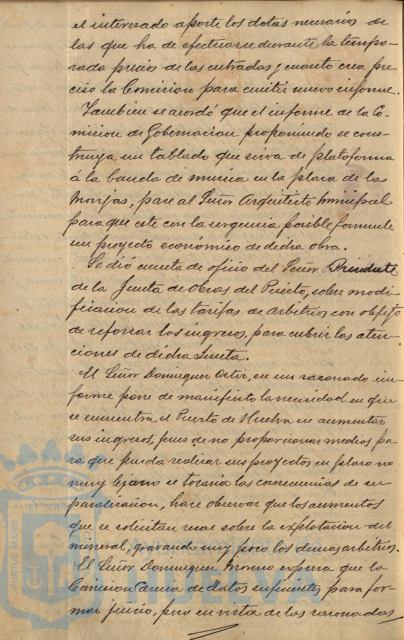 el interesado aporte los datos necesarios de
las que ha de efectuarse durante la tempo-
rada precios de las entradas y cuanto crea pre-
ciso la Comision para emitir nuevo informe.
Tambien se acordó que el informe de la Co-
mision de Gobernacion proponiendo se cons-
truya un tablado que sirva de plataforma
á la banda de musica en la plaza de las
Monjas, pase al Señor Arquitecto municipal
para que este con la urgencia posible formule
un proyecto económico de dicha obra.
Se dió cuenta de oficio del Señor Presidente
de la Junta de Obras del Puerto, sobre modi-
ficacion de las tarifas de arbitrios con objeto
de reforzar los ingresos, para cubrir las aten-
ciones de dicha Junta.
El Señor Dominguez Ortiz, en un razonado in-
forme pone de manifiesto la necesidad en que
se encuentra el Puerto de Huelva en aumentar
sus ingresos, pues de no proporcionar medios pa-
ra que pueda realizar sus proyectos en plazo no
muy lejano se tocarán las consecuencias de su
paralizacion, hace observar que los aumentos
que se solicitan recae sobre la explotacion del
mineral, gravando muy poco los demas arbitrios.
El Señor Dominguez Moreno expresa que la
Comision carecia de datos suficientes para for-
mar juicio, pero en vista de las razonadas
PORTUS MARIS